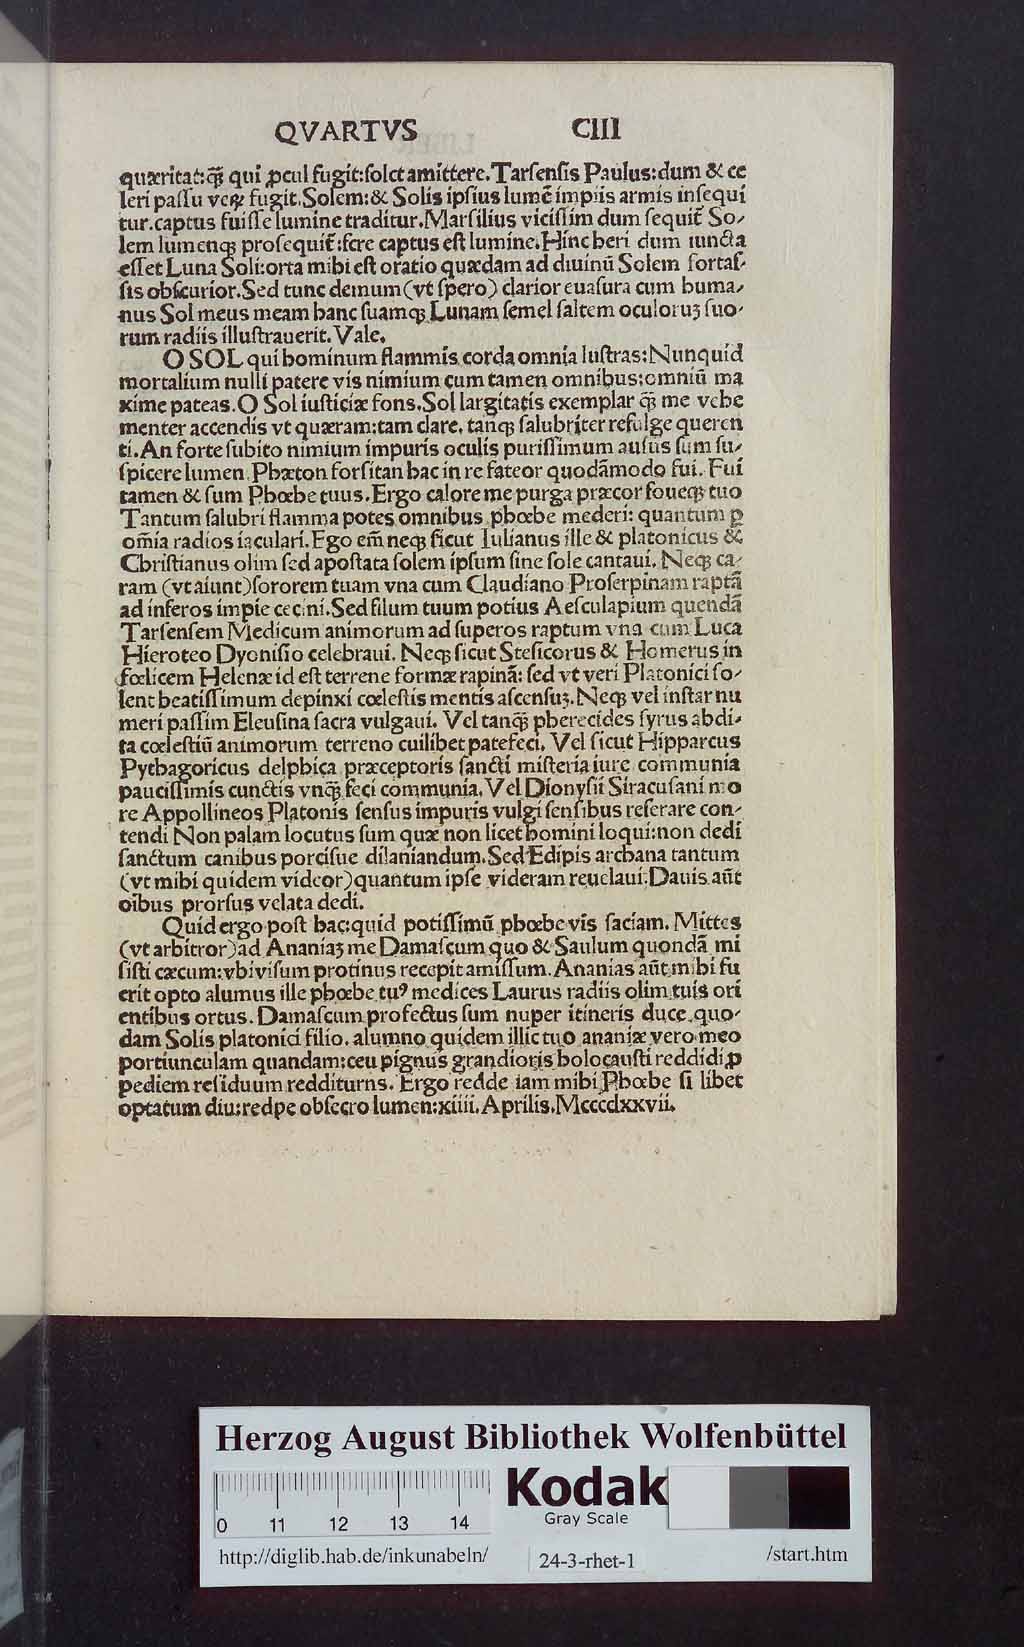 QVARTVS CIII
quæritat:q̃ꝫ qui ꝓcul fugit:ſolet amittere.Tarſenſis Paulus:dum & ce
leri paſſu veꝝ fugit.Solem:& Solis ipſius lumẽ impiis armis inſequi
tur.captus fuiſſe lumine traditur.Marſilius viciſſim dum ſequit̃ So⸗
lem lumenqꝫ proſequit̃:fere captus eſt lumine.Hinc heri dum iuncta
eſſet Luna Soli:orta mihi eſt oratio quædam ad diuinũ Solem fortaſ⸗
ſis obſcurior.Sed tunc demum(vt ſpero) clarior euaſura cum huma⸗
nus Sol meus meam hanc ſuamqꝫ Lunam ſemel ſaltem oculoruꝫ ſuo⸗
rum radiis illuſtrauerit.Vale.
O SOL qui hominum flammis corda omnia luſtras:Nunquid
mortalium nulli patere vis nimium cum tamen omnibus:omniũ ma
xime pateas.O Sol iuſticiæ fons.Sol largitatis exemplar q̃ꝫ me vehe
menter accendis vt quæram:tam clare, tanqꝫ ſalubriter refulge queren
ti.An forte ſubito nimium impuris oculis puriſſimum auſus ſum ſu⸗
ſpicere lumen.Phæton forſitan hac in re fateor quodãmodo fui. Fui
tamen & ſum Phœbe tuus.Ergo calore me purga præcor foueqꝫ tuo
Tantum ſalubri flamma potes omnibus phœbe mederi: quantum ꝑ
om̃ia radios iaculari.Ego em̃ neqꝫ ſicut Iulianus ille & platonicus &
Chriſtianus olim ſed apoſtata ſolem ipſum ſine ſole cantaui. Neqꝫ ca⸗
ram (vt aiunt)ſororem tuam vna cum Claudiano Proſerpinam raptã
ad inferos impie cecini.Sed filum tuum potius Aeſculapium quendã
Tarſenſem Medicum animorum ad ſuperos raptum vna cum Luca
Hieroteo Dyoniſio celebraui. Neqꝫ ſicut Steſicorus & Homerus in
fœlicem Helenæ id eſt terrene formæ rapinã: ſed vt veri Platonici ſo⸗
lent beatiſſimum depinxi cœleſtis mentis aſcenſuꝫ.Neqꝫ vel inſtar nu
meri paſſim Eleuſina ſacra vulgaui. Vel tanq̃ꝫ pherecides ſyrus abdi⸗
ta cœleſtiũ animorum terreno cuilibet patefeci. Vel ſicut Hipparcus
Pythagoricus delphica præceptoris ſancti miſteria iure communia
pauciſſimis cunctis vnq̃ꝫ feci communia. Vel Dionyſii Siracuſani mo
re Appollineos Platonis ſenſus impuris vulgi ſenſibus reſerare con⸗
tendi Non palam locutus ſum quæ non licet homini loqui:non dedi
ſanctum canibus porciſue dilaniandum.Sed Edipis archana tantum
(vt mihi quidem videor)quantum ipſe videram reuelaui:Dauis aũt
oibus prorſus velata dedi.
Quid ergo poſt hac:quid potiſſimũ phœbe vis faciam. Mittes
(vt arbitror)ad Ananiaꝫ me Damaſcum quo & Saulum quondã mi
ſiſti cæcum:vbi viſum protinus recepit amiſſum. Ananias aũt mihi fu
erit opto alumus ille phœbe tuꝰ medices Laurus radiis olim tuis ori
entibus ortus. Damaſcum profectus ſum nuper itineris duce quo⸗
dam Solis platonici filio. alumno quidem illic tuo ananiæ vero meo
portiunculam quandam:ceu pignus grandioris holocauſti reddidi ꝓ
pediem reſiduum redditurns. Ergo redde iam mihi Phœbe ſi libet
optatum diu:redpe obſecro lumen:xiiii.Aprilis.Mccccłxxvii.
Herzog August Bibliothek Wolfenbüttel
0 11 12 13 14
Kodak
Gray Scale
http://diglib.hab.de/inkunabeln/ 24-3-rhet-1 /start.htm